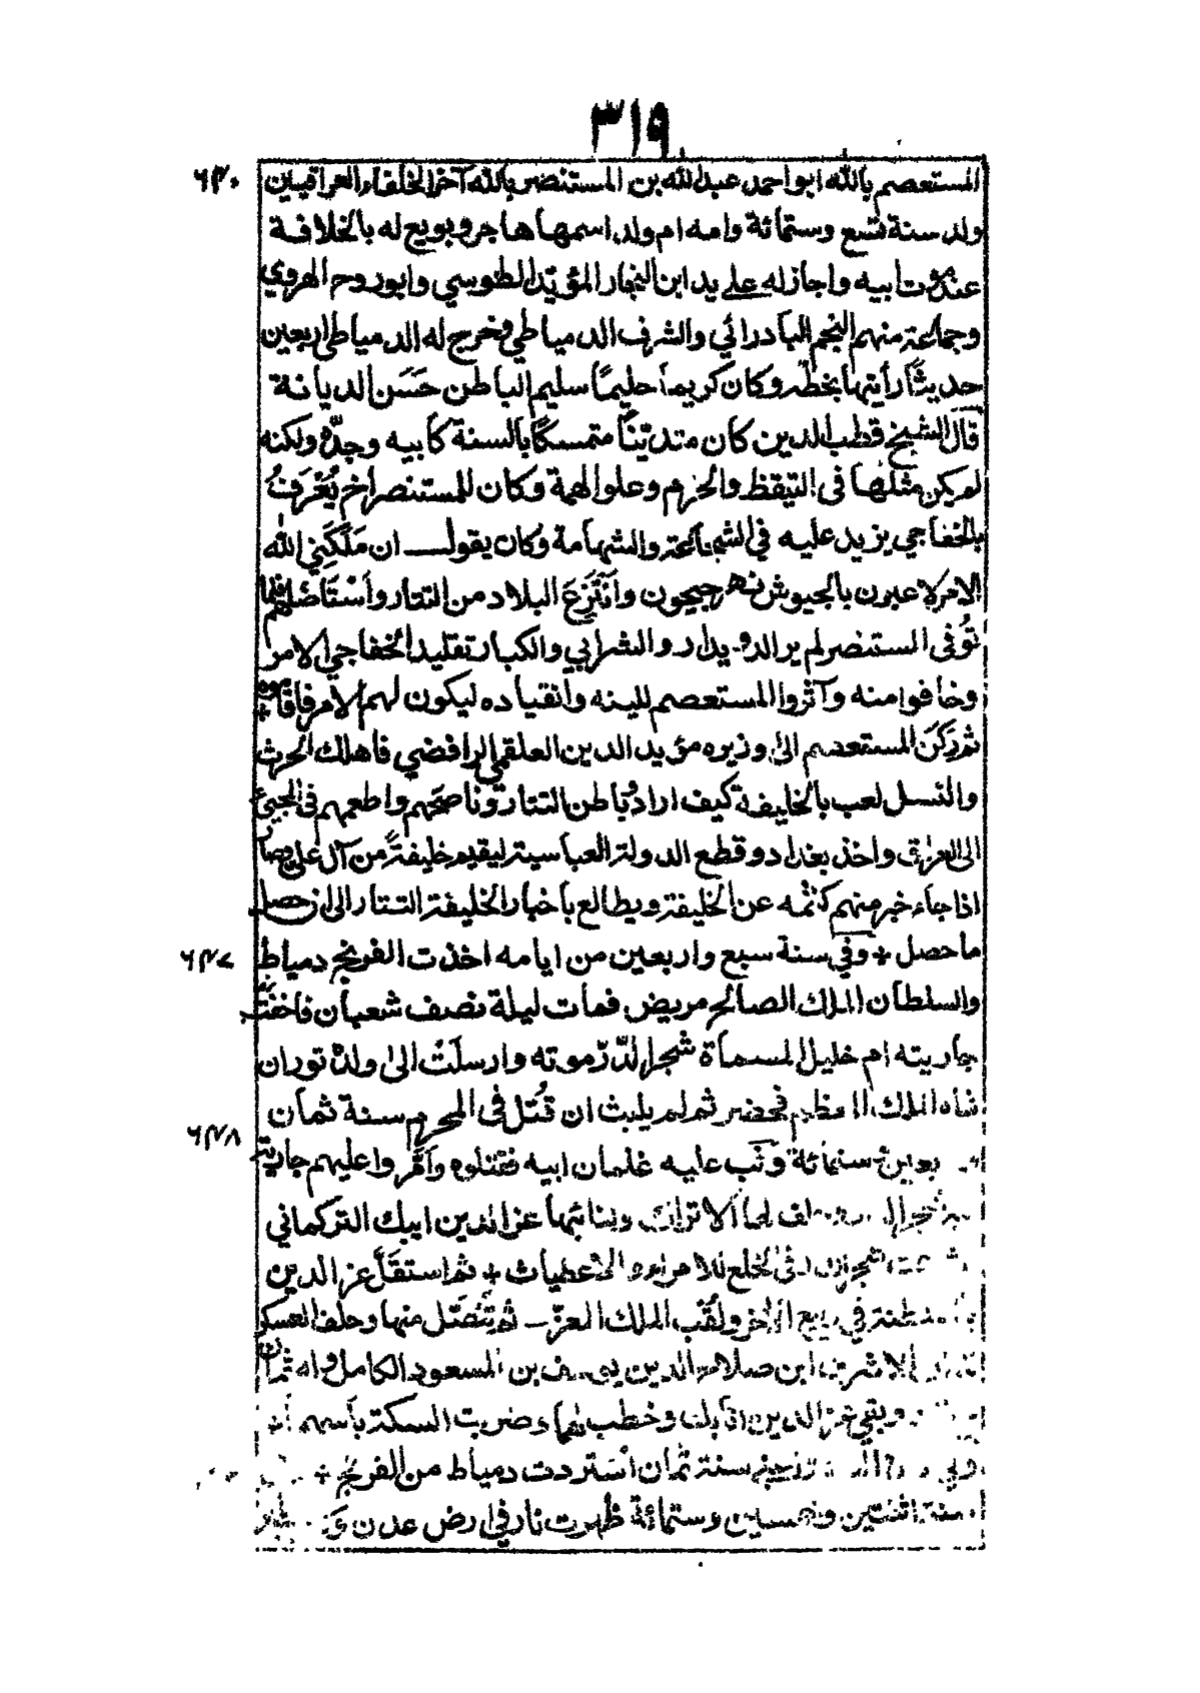 ٣١٩
٦٤٠
المستعصم بالله ابو احمد عبدالله بن المستنصر بالله آخر الخلفاء العراقيين
ولد سنة تسع وستمائة وامه ام ولد اسمها هاجر وبويع له بالخلافة
عند موت ابيه واجاز له على يد ابن النجار المؤيد الطوسي وابو روح الهروي
وجماعة منهم النجم البادرائي والشرف الدمياطي وخرج له الدمياطي اربعين
حديثا رأيتها بخطه وكان كريما حليمًا سليم الباطن حَسَن الديانة
قال الشيخ قطب الدين كان متديّنًا متمسكًا بالسنة كأبيه وجدّه ولكنه
لم يكن مثلهما في التيقظ والحزم وعلو الهمة وكان للمستنصر أخ يُعْرَفُ
بالخفاجي يزيد عليه في الشجاعة والشهامة وكان يقول ان مَلَّكَنِي الله
الامر لاعبرن بالجيوش نهر جيحون وأَنْتَزِعَ البلاد من التتار وأَسْتَاصَلهم فلما
تُوفى المستنصر لم ير الدويدار والشرابي والكبار تقليد الخفاجي الامر
وخافوا منه وآثروا المستعصم للينه وانقياده ليكون لهم الامر فاقاموه
ثم رَكَنَ المستعصم الى وزيره مؤيد الدين العلقمي الرافضي فاهلك الحرث
والنسل لعب بالخليفة كيف اراد وباطن التتار وناصحهم واطعمهم في المجيئ
الى العراق واخذ بغداد وقطع الدولة العباسية ليقيم خليفةً من آل علي وصار
اذا جاء خبر منهم كتمه عن الخليفة ويطالع بأخبار الخليفة التتار الى ان حصل
٦٤٧
ما حصل + وفي سنة سبع واربعين من ايامه اخذت الفرنج دمياط
والسلطان الملك الصالح مريض فمات ليلة نصف شعبان فاخفت
جاريته ام خليل المسماة شجر الدّر موته وارسلَتْ الى ولده توران
شاه الملك المعظم فحضر ثم لم يلبث ان قُتل في المحرم سنة ثمان
٦٤٨
بعين وستمائة وَثَب عليه غلمان ابيه فقتلوه وأَمَّروا عليهم جارية
لها الاتراك ونائبها عز الدين ايبك التركماني
في الخلع للامراء والاعطيات + ثم استقَلَّ عز الدين
في ربيع الآخر ولُقّب الملك المعزّ ثم تَنَصَّل منها وحلف العسكر
الاشرف ابن صلاح الدين يوسف بن المسعود الكامل وله ثمان
وبقي عز الدين اتابك وخطب لهما وضربت السكة باسمهما
وفي سنة ثمان استردت دمياط من الفرنج +
سنة اثنتين وخمسين وستمائة ظهرت نار في ارض عدن